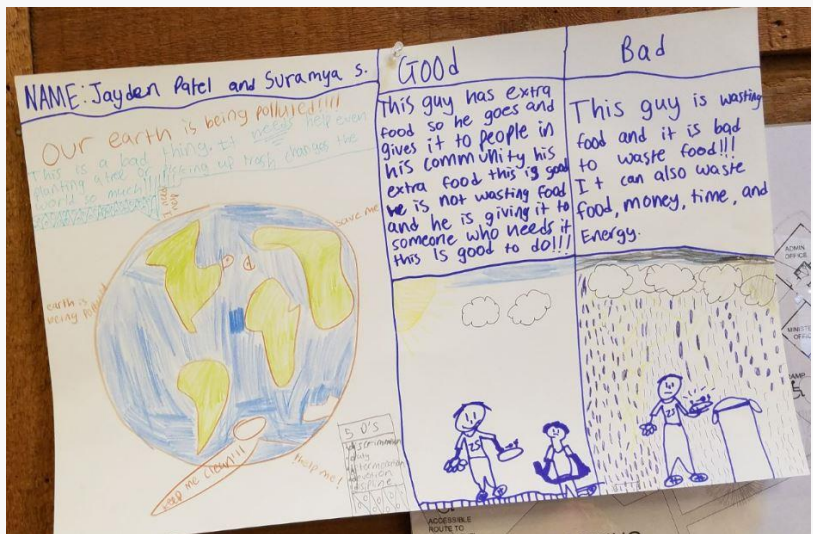 NAME: Jayden Patel and Suramya S.
Our earth is being polluted!!!!
This is a bad thing. It needs help even
planting a tree or picking up trash changes the
world so much!!
save me
earth is
being polluted
keep me clean!!!
!help me!
5 D's
discrimination
duty
determination
devotion
discipline
Good
This guy has extra
food so he goes and
gives it to people in
his community his
extra food this is good
he is not wasting food
and he is giving it to
someone who needs it
this is good to do!!!
23
Bad
This guy is wasting
food and it is bad
to waste food!!!
It can also waste
food, money, time, and
Energy.
23
ADMIN
OFFICE
ACCESSIBLE
ROUTE TO